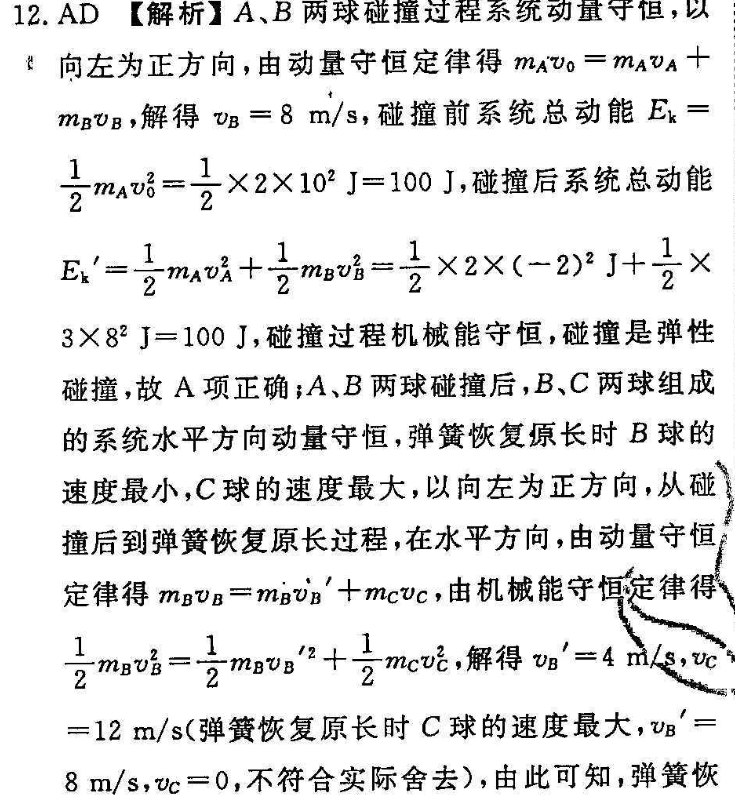 12. AD 【解析】A、B 两球碰撞过程系统动量守恒,以
向左为正方向,由动量守恒定律得 m_A v_0 = m_A v_A +
m_B v_B,解得 v_B = 8 m/s,碰撞前系统总动能 E_k =
\frac{1}{2} m_A v_0^2 = \frac{1}{2} × 2 × 10^2 J = 100 J,碰撞后系统总动能
E_k′ = \frac{1}{2} m_A v_A^2 + \frac{1}{2} m_B v_B^2 = \frac{1}{2} × 2 × (-2)^2 J + \frac{1}{2} ×
3 × 8^2 J = 100 J,碰撞过程机械能守恒,碰撞是弹性
碰撞,故 A 项正确;A、B 两球碰撞后,B、C 两球组成
的系统水平方向动量守恒,弹簧恢复原长时 B 球的
速度最小,C 球的速度最大,以向左为正方向,从碰
撞后到弹簧恢复原长过程,在水平方向,由动量守恒
定律得 m_B v_B = m_B v_B′ + m_C v_C,由机械能守恒定律得
\frac{1}{2} m_B v_B^2 = \frac{1}{2} m_B v_B′^2 + \frac{1}{2} m_C v_C^2,解得 v_B′ = 4 m/s,v_C
= 12 m/s(弹簧恢复原长时 C 球的速度最大,v_B′ =
8 m/s,v_C = 0,不符合实际舍去),由此可知,弹簧恢